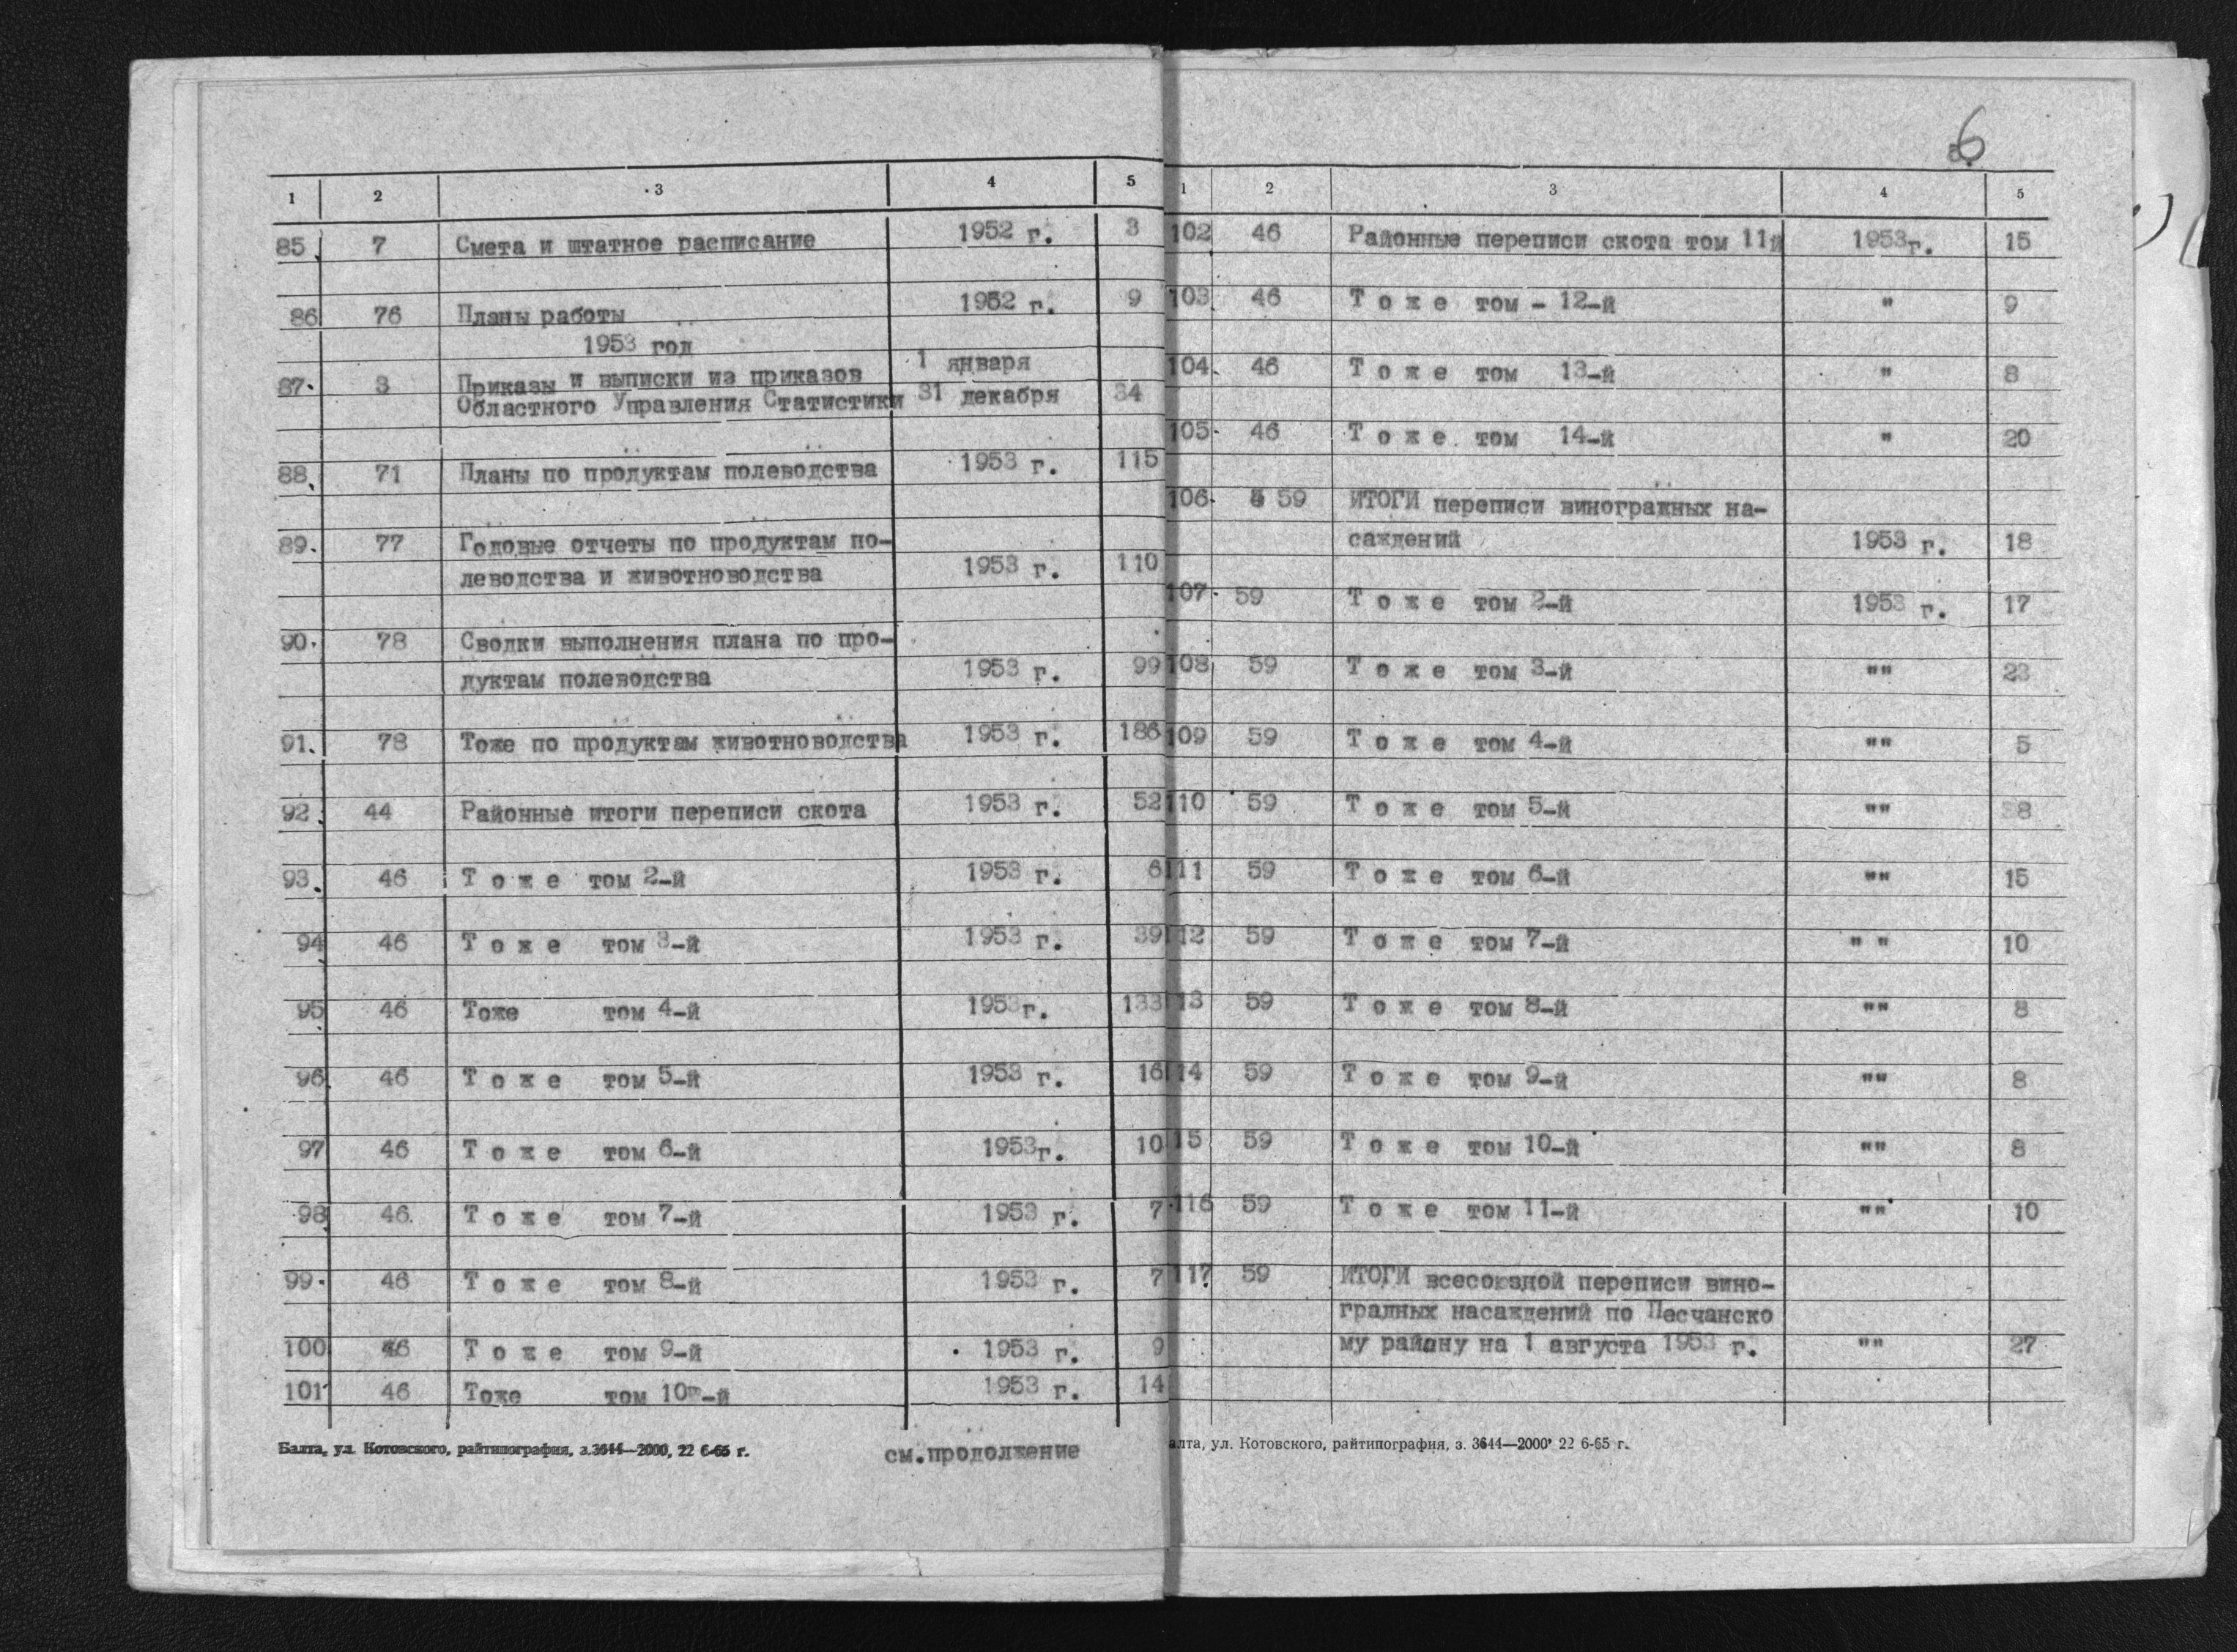 1 2 3 4 5
85. 7 Смета и штатное расписание 1952 г. 3
86 76 Планы работы 1952 г. 9
1953 год
87. 3 Приказы и выписки из приказов 1 января
Областного Управления Статистики 31 декабря 34
88. 71 Планы по продуктам полеводства 1953 г. 115
89. 77 Годовые отчеты по продуктам по-
леводства и животноводства 1953 г. 110
90. 78 Сводки выполнения плана по про-
дуктам полеводства 1953 г. 99
91. 78 Тоже по продуктам животноводства 1953 г. 186
92. 44 Районные итоги переписи скота 1953 г. 52
93. 46 Т о ж е том 2-й 1953 г. 6
94. 46 Т о ж е том 3-й 1953 г. 39
95 46 Тоже том 4-й 1953г. 133
96 46 Т о ж е том 5-й 1953 г. 16
97 46 Т о ж е том 6-й 1953г. 10
98 46. Т о ж е том 7-й 1953 г. 7
99. 46 Т о ж е том 8-й 1953 г. 7
100 46 Т о ж е том 9-й 1953 г. 9
101 46 Тоже том 10-й 1953 г. 14
Балта, ул. Котовского, райтипография, з.3644—2000, 22 6-65 г.
см.продолжение
6
1 2 3 4 5
102 46 Районные переписи скота том 11й 1953г. 15
103 46 Т о ж е том - 12-й " 9
104. 46 Т о ж е том 13-й " 8
105. 46 Т о ж е том 14-й " 20
106. 59 ИТОГИ переписи виноградных на-
саждений 1953 г. 18
107. 59 Т о ж е том 2-й 1953 г. 17
108 59 Т о ж е том 3-й "" 23
109 59 Т о ж е том 4-й "" 5
110 59 Т о ж е том 5-й "" 8
111 59 Т о ж е том 6-й "" 15
112 59 Т о ж е том 7-й " " 10
113 59 Т о ж е том 8-й "" 8
114 59 Т о ж е том 9-й "" 8
115 59 Т о ж е том 10-й "" 8
116 59 Т о ж е том 11-й "" 10
117. 59 ИТОГИ всесоюзной переписи вино-
градных насаждений по Песчанско
му району на 1 августа 1953 г. "" 27
алта, ул. Котовского, райтипография, з. 3644—2000' 22 6-65 г.